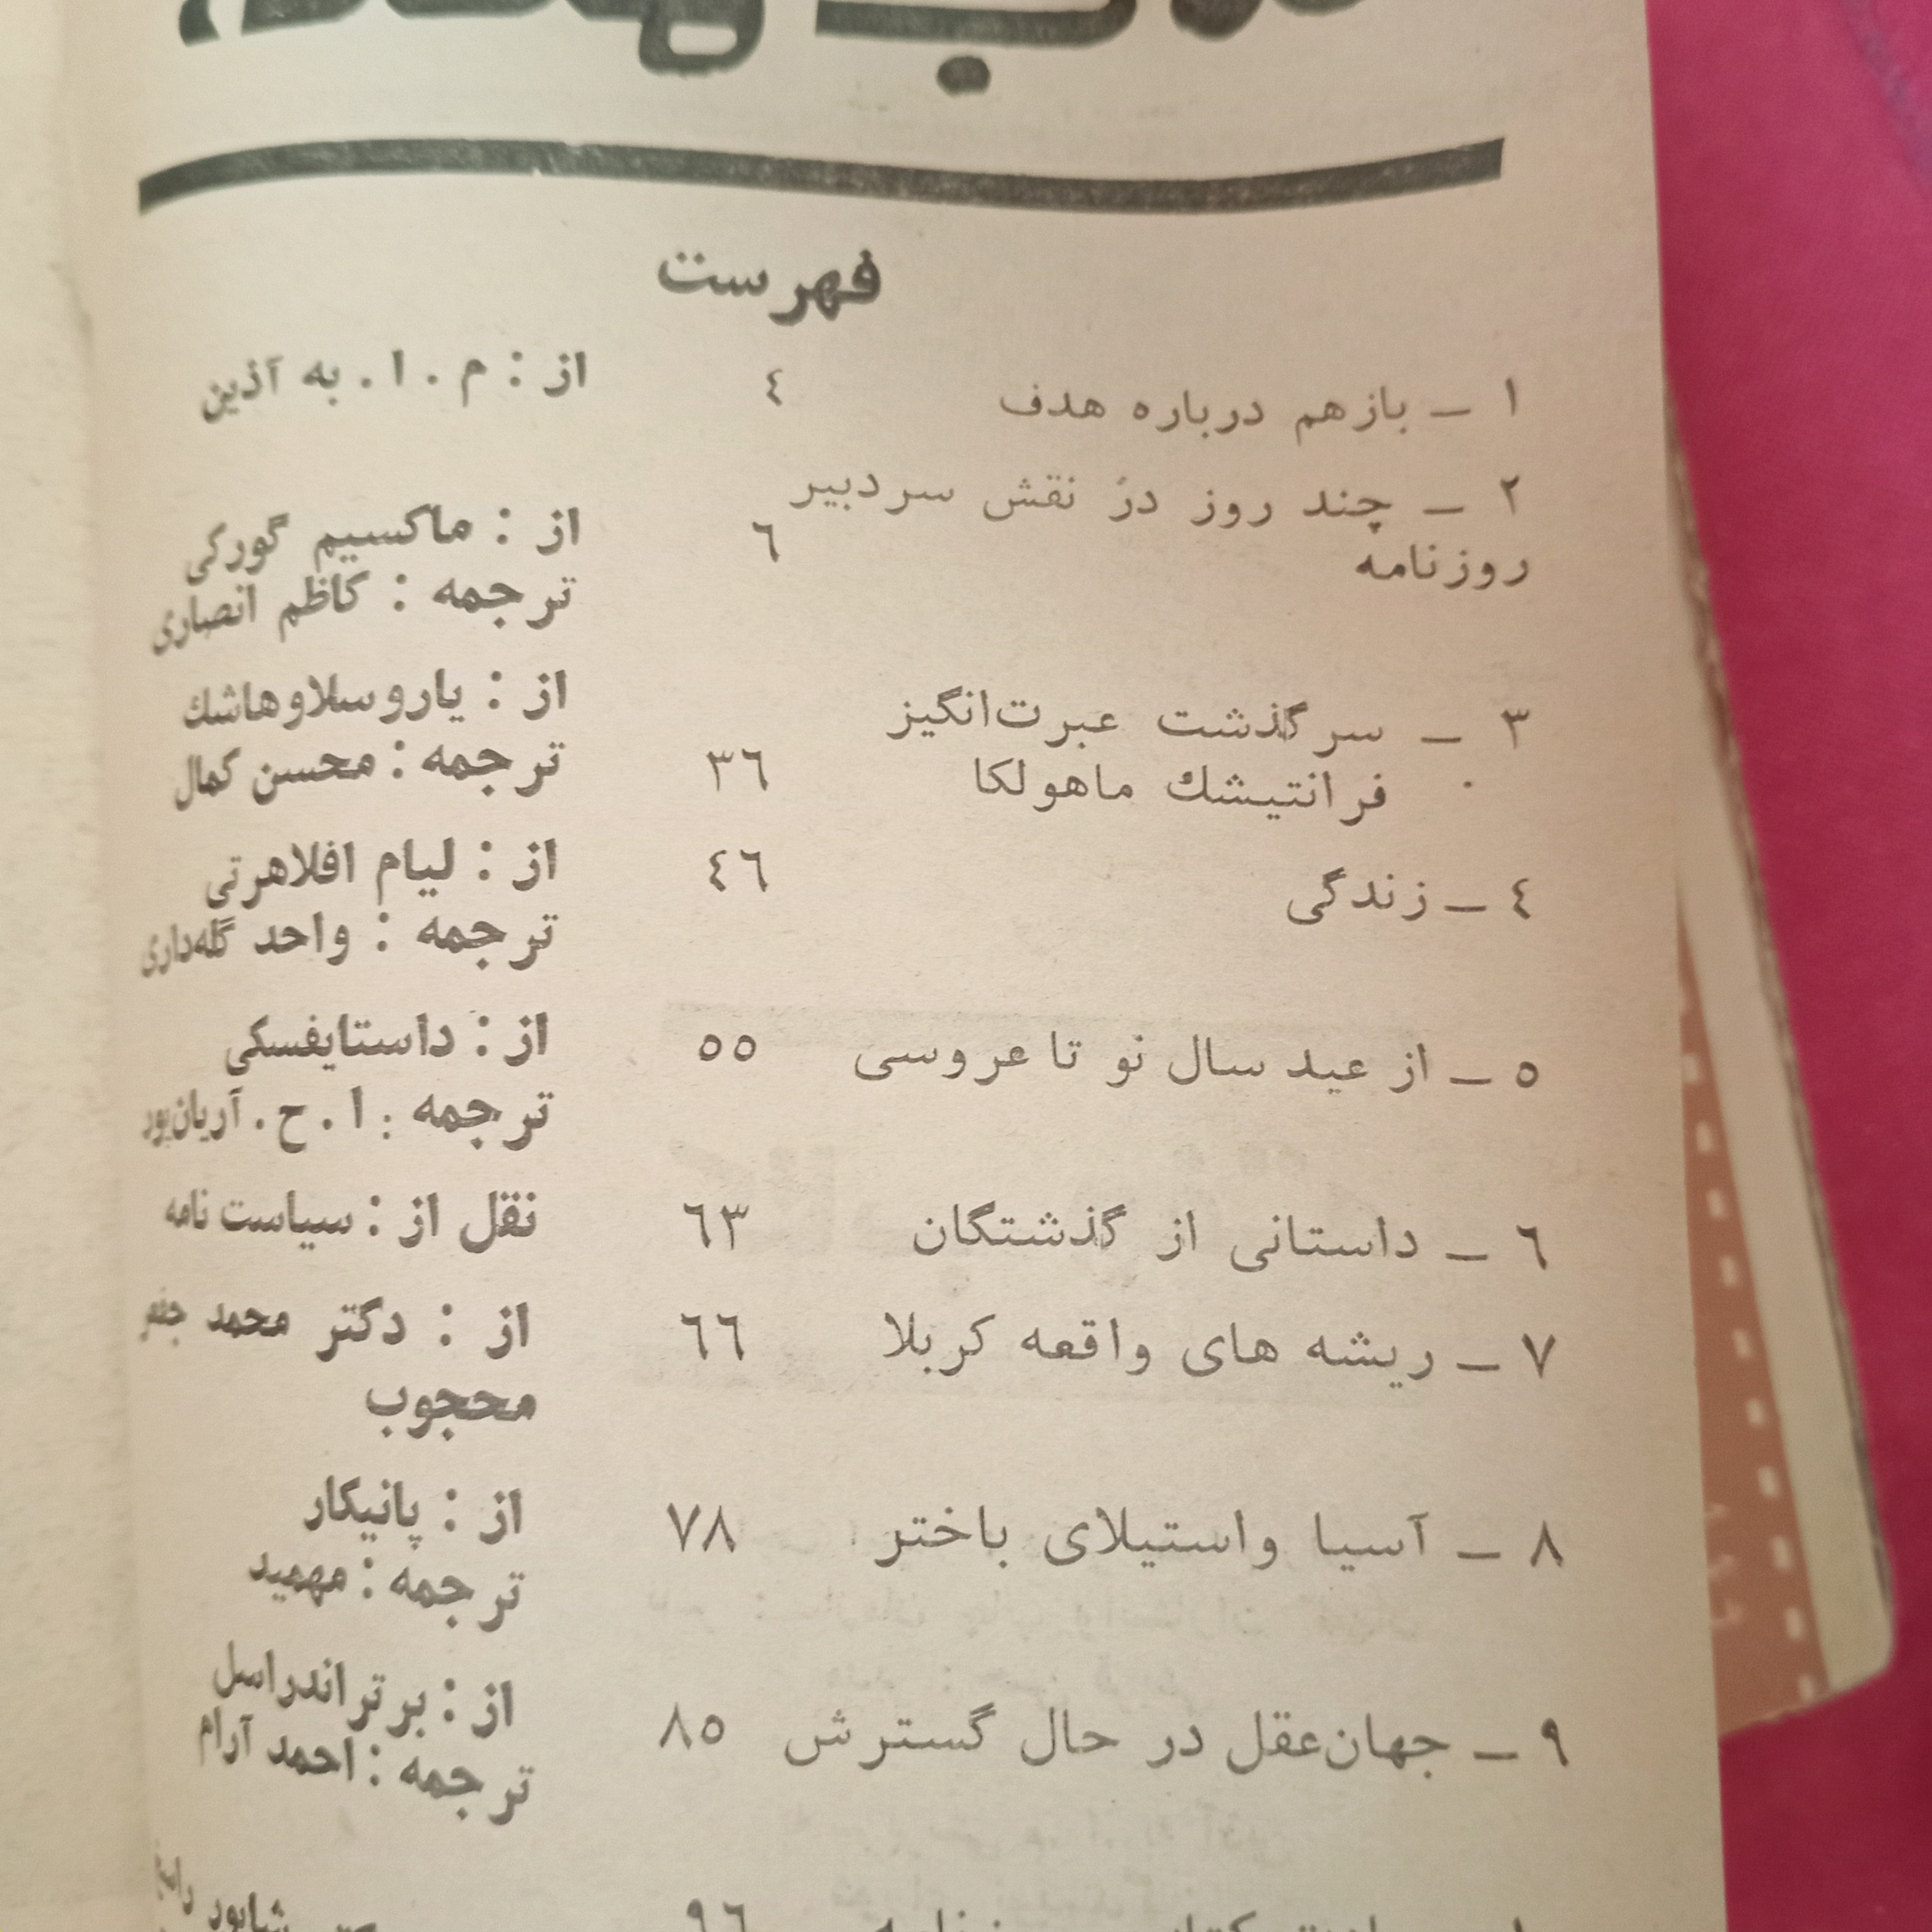 فهرست
۱ ـ بازهم درباره هدف ٤ از : م . ا . به آذین
۲ ـ چند روز در نقش سردبیر
روزنامه ٦ از : ماکسیم گورکی
ترجمه : کاظم انصاری
۳ ـ سرگذشت عبرت‌انگیز از : یاروسلاوهاشك
فرانتیشك ماهولکا ۳٦ ترجمه : محسن کمال
٤ ـ زندگی ٤٦ از : لیام افلاهرتی
ترجمه : واحد گله‌داری
٥ ـ از عید سال نو تا عروسی ٥٥ از : داستایفسکی
ترجمه : ا . ح . آریان‌پور
٦ ـ داستانی از گذشتگان ٦۳ نقل از : سیاست نامه
۷ ـ ریشه های واقعه کربلا ٦٦ از : دکتر محمد جعفر
محجوب
۸ ـ آسیا واستیلای باختر ۷۸ از : پانیکار
ترجمه : مهمید
۹ ـ جهان‌عقل در حال گسترش ۸٥ از : برتراندراسل
ترجمه : احمد آرام
۹٦ شاپور